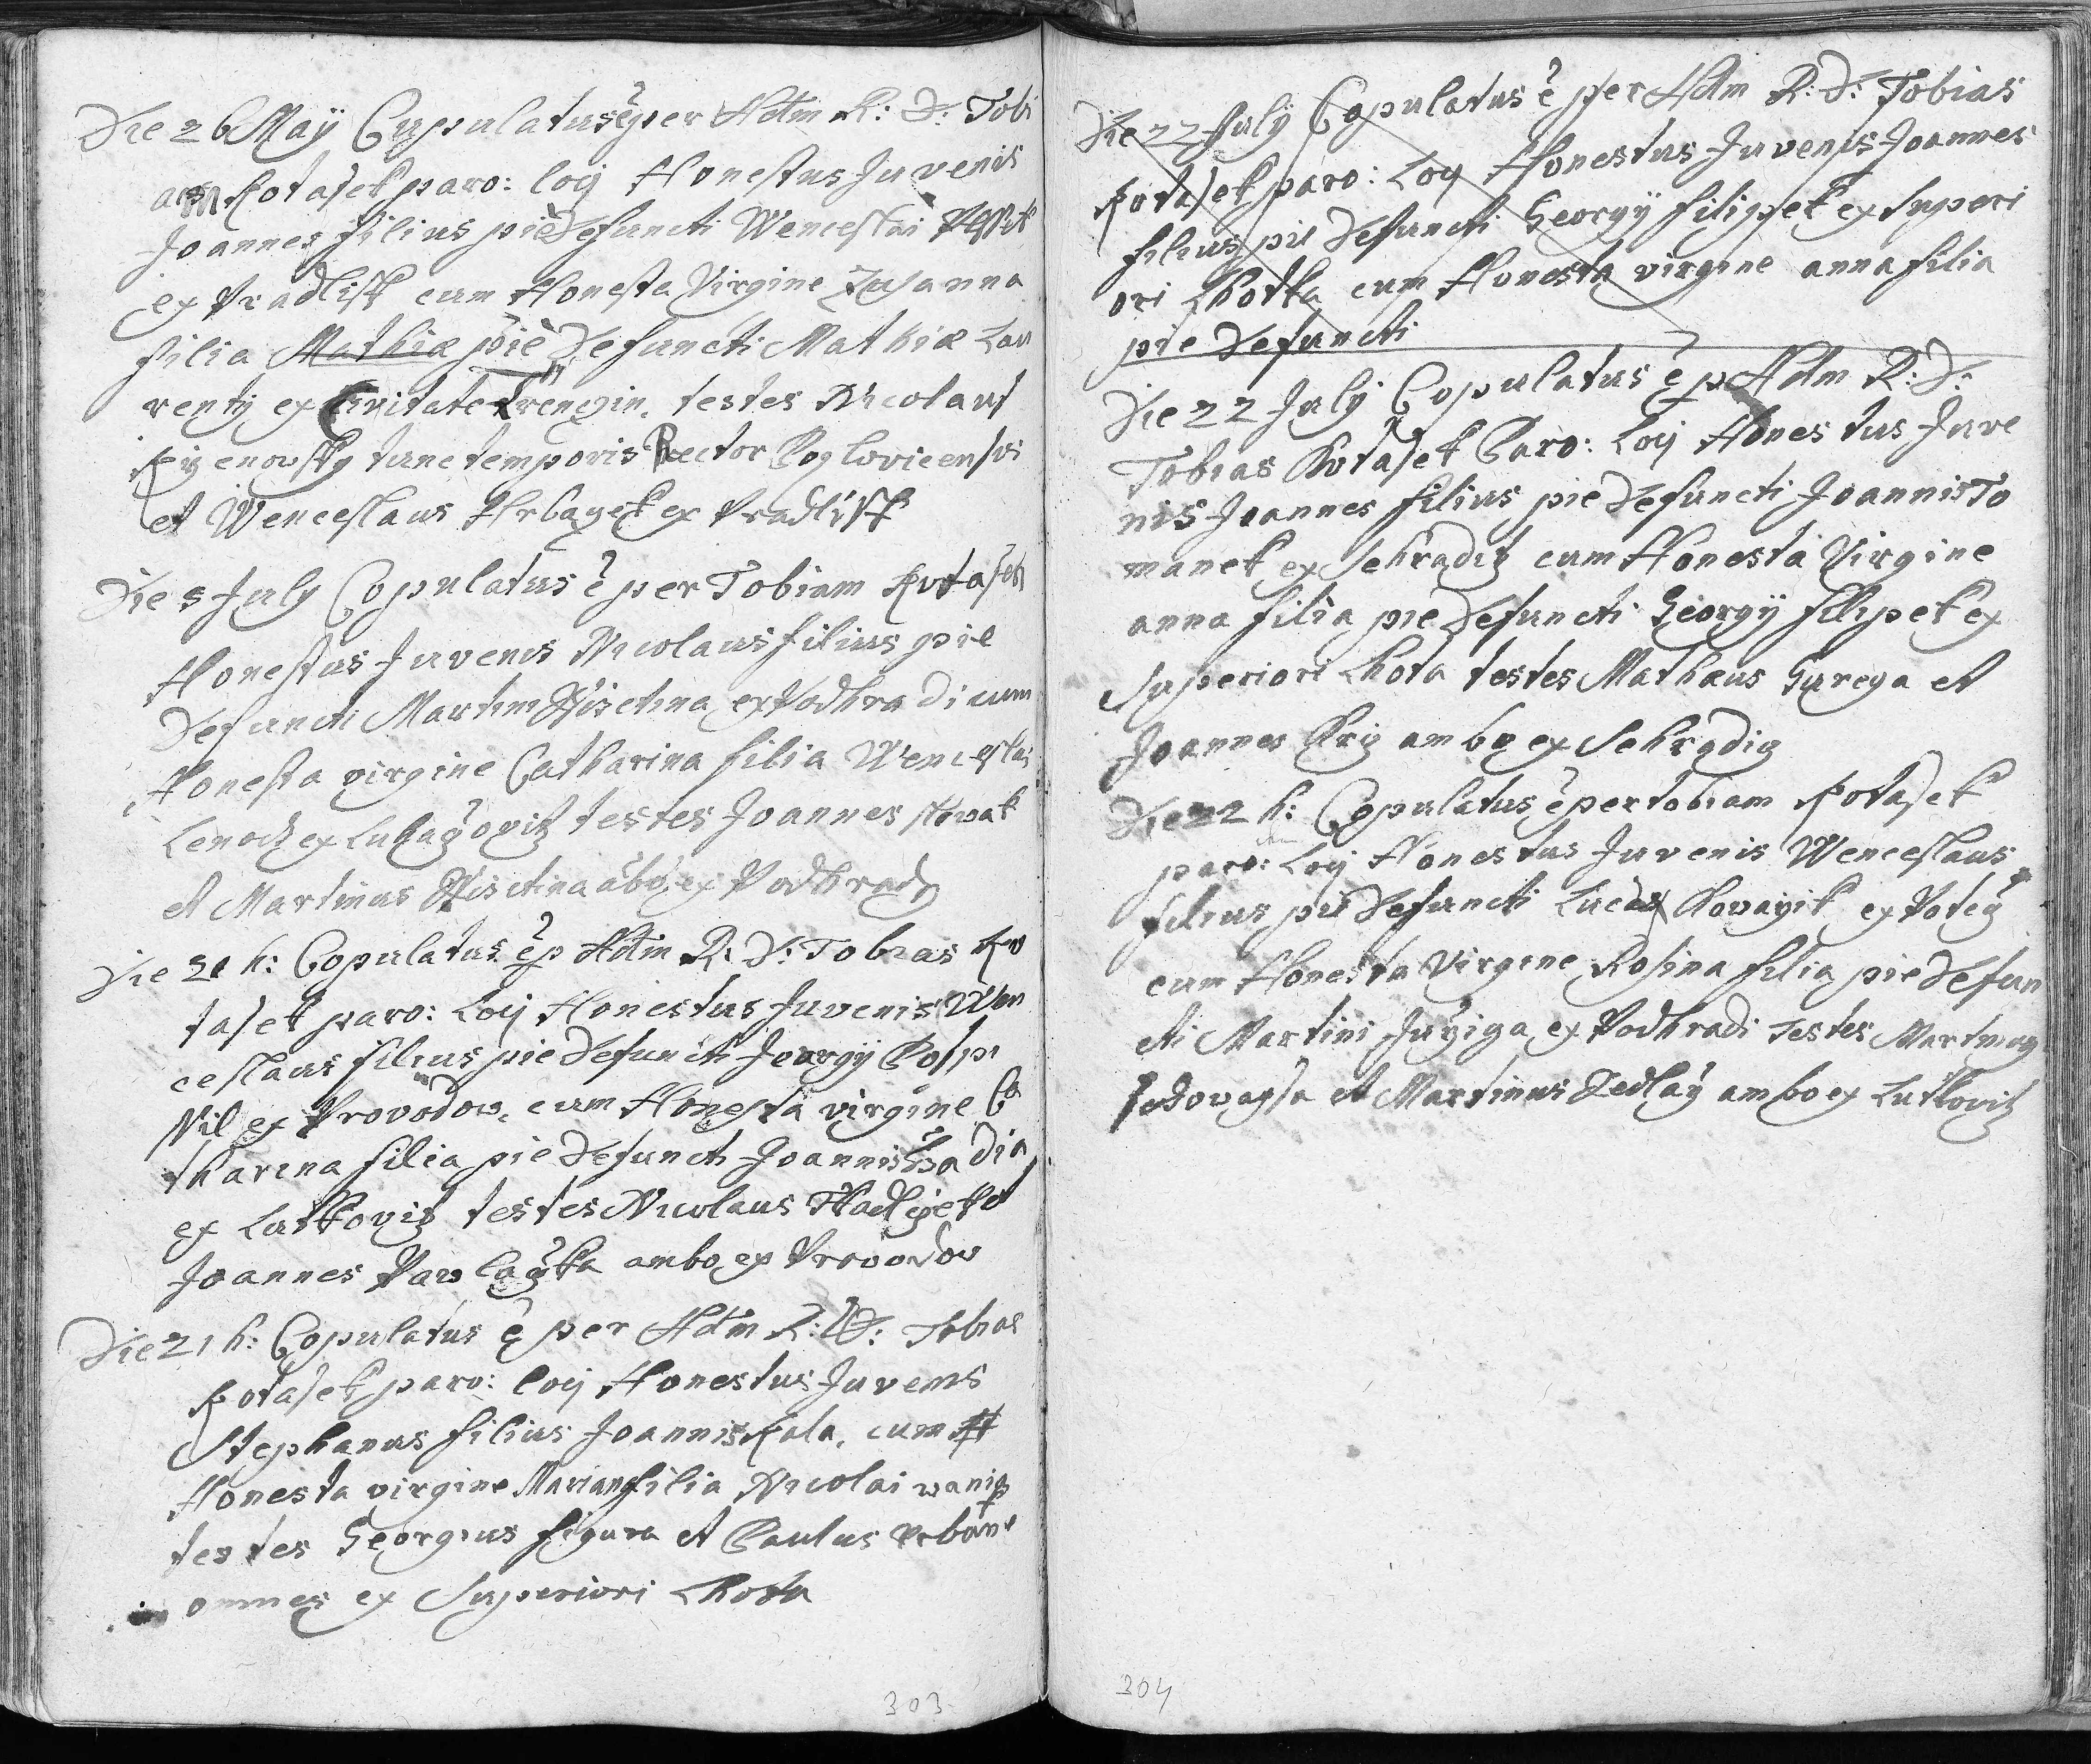 Die 26 Maÿ Cupulatus ẽ per Adm R: D: Tobi
am Kotasek paro: locÿ Honestus Juvenis
Joannes filius piè Defuncti Wenceslai
ex Pradlisk cum Honesta Virgine Zusanna
filia Mathiæ piè Defuncti Mathiæ Lau
rentÿ ex Civitate Trenczin, testes Nicolaus
tunc temporis Rector Pozlovicensis
et Wenceslaus Hrbaczek ex Pradlisk
Die 5 July Copulatus ẽ per Tobiam Kotasek
Honestus Juvenis Nicolaus filius pie
Defuncti Martini Wisctina ex Podhradi cum
Honesta virgine Catharina filia Wenceslai
Lenoch ex Luhaczovitz testes Joannes Nowak
et Martinus Wisctina ãbo ex Podhrady
Die h: Copulatus ẽ p Adm R: D: Tobias Ko
tasek paro: Locÿ Honestus Juvenis Wen
ceslaus filius pie Defuncti Georgÿ Pospi
ssil ex Provodow, cum Honesta virgine Ca
tharina filia pie Defuncti Joannis
ex Lutkovitz testes Nicolaus et
Joannes Pawlaczka ambo ex Provodov
Die 21 h: Copulatus ẽ per Adm R: D: Tobias
Kotasek paro: locÿ Honestus Juvenis
Stephanus filius Joannis Kala, cum H
Honesta virgine Mariana filia Nicolai
testes Georgius Figura et Paulus
omnes ex Superiori Lhota
303
Die 22 July Copulatus ẽ per Adm R: D: Tobias
Kotasek paro: Locÿ Honestus Juvenis Joannes
filius pie Defuncti Georgÿ Filipek ex Superi
ori Lhotka cum Honesta virgine anna filia
pie Defuncti
Die 22 July Copulatus ẽ p Adm R: D:
Tobias Kotasek Paro: Locÿ Honestus Juve
nis Joannes filius pie Defuncti Joannis To
manek ex Sehradiz cum Honesta Virgine
anna filia pie Defuncti Georgÿ Filipek ex
Superiori Lhota testes Mathæus Gurega et
Joannes Kriz ambo ex Sehradiz
Die 22 h: Copulatus ẽ per tobiam Kotasek
paro: Locÿ Honestus Juvenis Wenceslaus
filius pie Defuncti Lucæ Kovarzik ex Potecz
cum Honesta Virgine Rosina filia pie Defun
cti Martini ex Podhradi testes Martinus
et Martinus Sedlarz ambo ex Lutkovitz
304